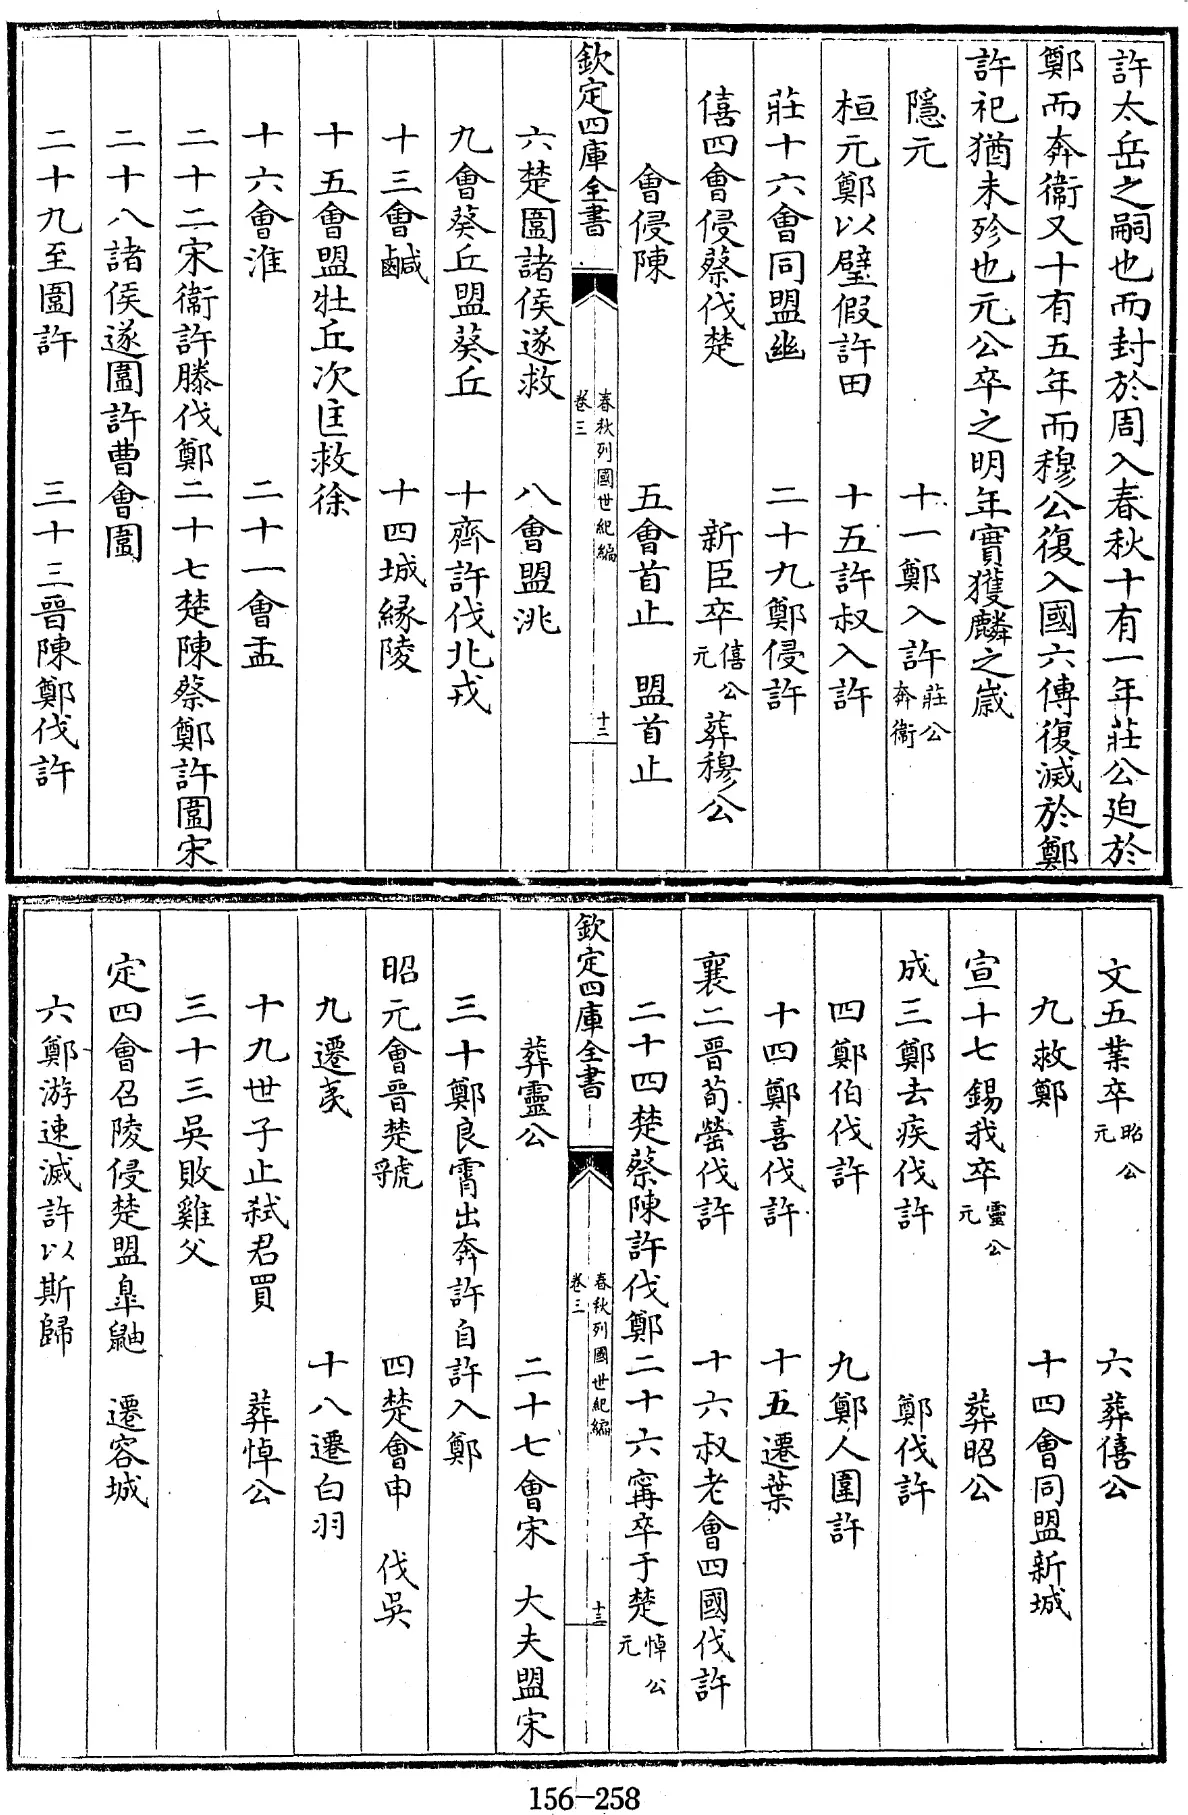 許太岳之嗣也而封於周入春秋十有一年莊公迫於
鄭而奔衞又十有五年而穆公復入國六傳復滅於鄭
許祀猶未殄也元公卒之明年實獲麟之歲
隱元 十一鄭入許莊公奔衞
桓元鄭以璧假許田 十五許叔入許
莊十六會同盟幽 二十九鄭侵許
僖四會侵蔡伐楚 新臣卒僖公元 葬穆公
會侵陳 五會首止 盟首止
欽定四庫全書 春秋列國世紀編 卷三 十二
六楚圍諸侯遂救 八會盟洮
九會葵丘盟葵丘 十齊許伐北戎
十三會鹹 十四城緣陵
十五會盟牡丘次匡救徐
十六會淮 二十一會盂
二十二宋衞許滕伐鄭二十七楚陳蔡鄭許圍宋
二十八諸侯遂圍許曹會圍
二十九至圍許 三十三晉陳鄭伐許
文五業卒昭公元 六葬僖公
九救鄭 十四會同盟新城
宣十七錫我卒靈公元 葬昭公
成三鄭去疾伐許 鄭伐許
四鄭伯伐許 九鄭人圍許
十四鄭喜伐許 十五遷葉
襄二晉荀罃伐許 十六叔老會四國伐許
二十四楚蔡陳許伐鄭二十六甯卒于楚悼公元
欽定四庫全書 春秋列國世紀編 卷三 十三
葬靈公 二十七會宋 大夫盟宋
三十鄭良霄出奔許自許入鄭
昭元會晉楚虢 四楚會申 伐吳
九遷夷 十八遷白羽
十九世子止弑君買 葬悼公
三十三吳敗雞父
定四會召陵侵楚盟臯鼬 遷容城
六鄭游速滅許以斯歸
156-258